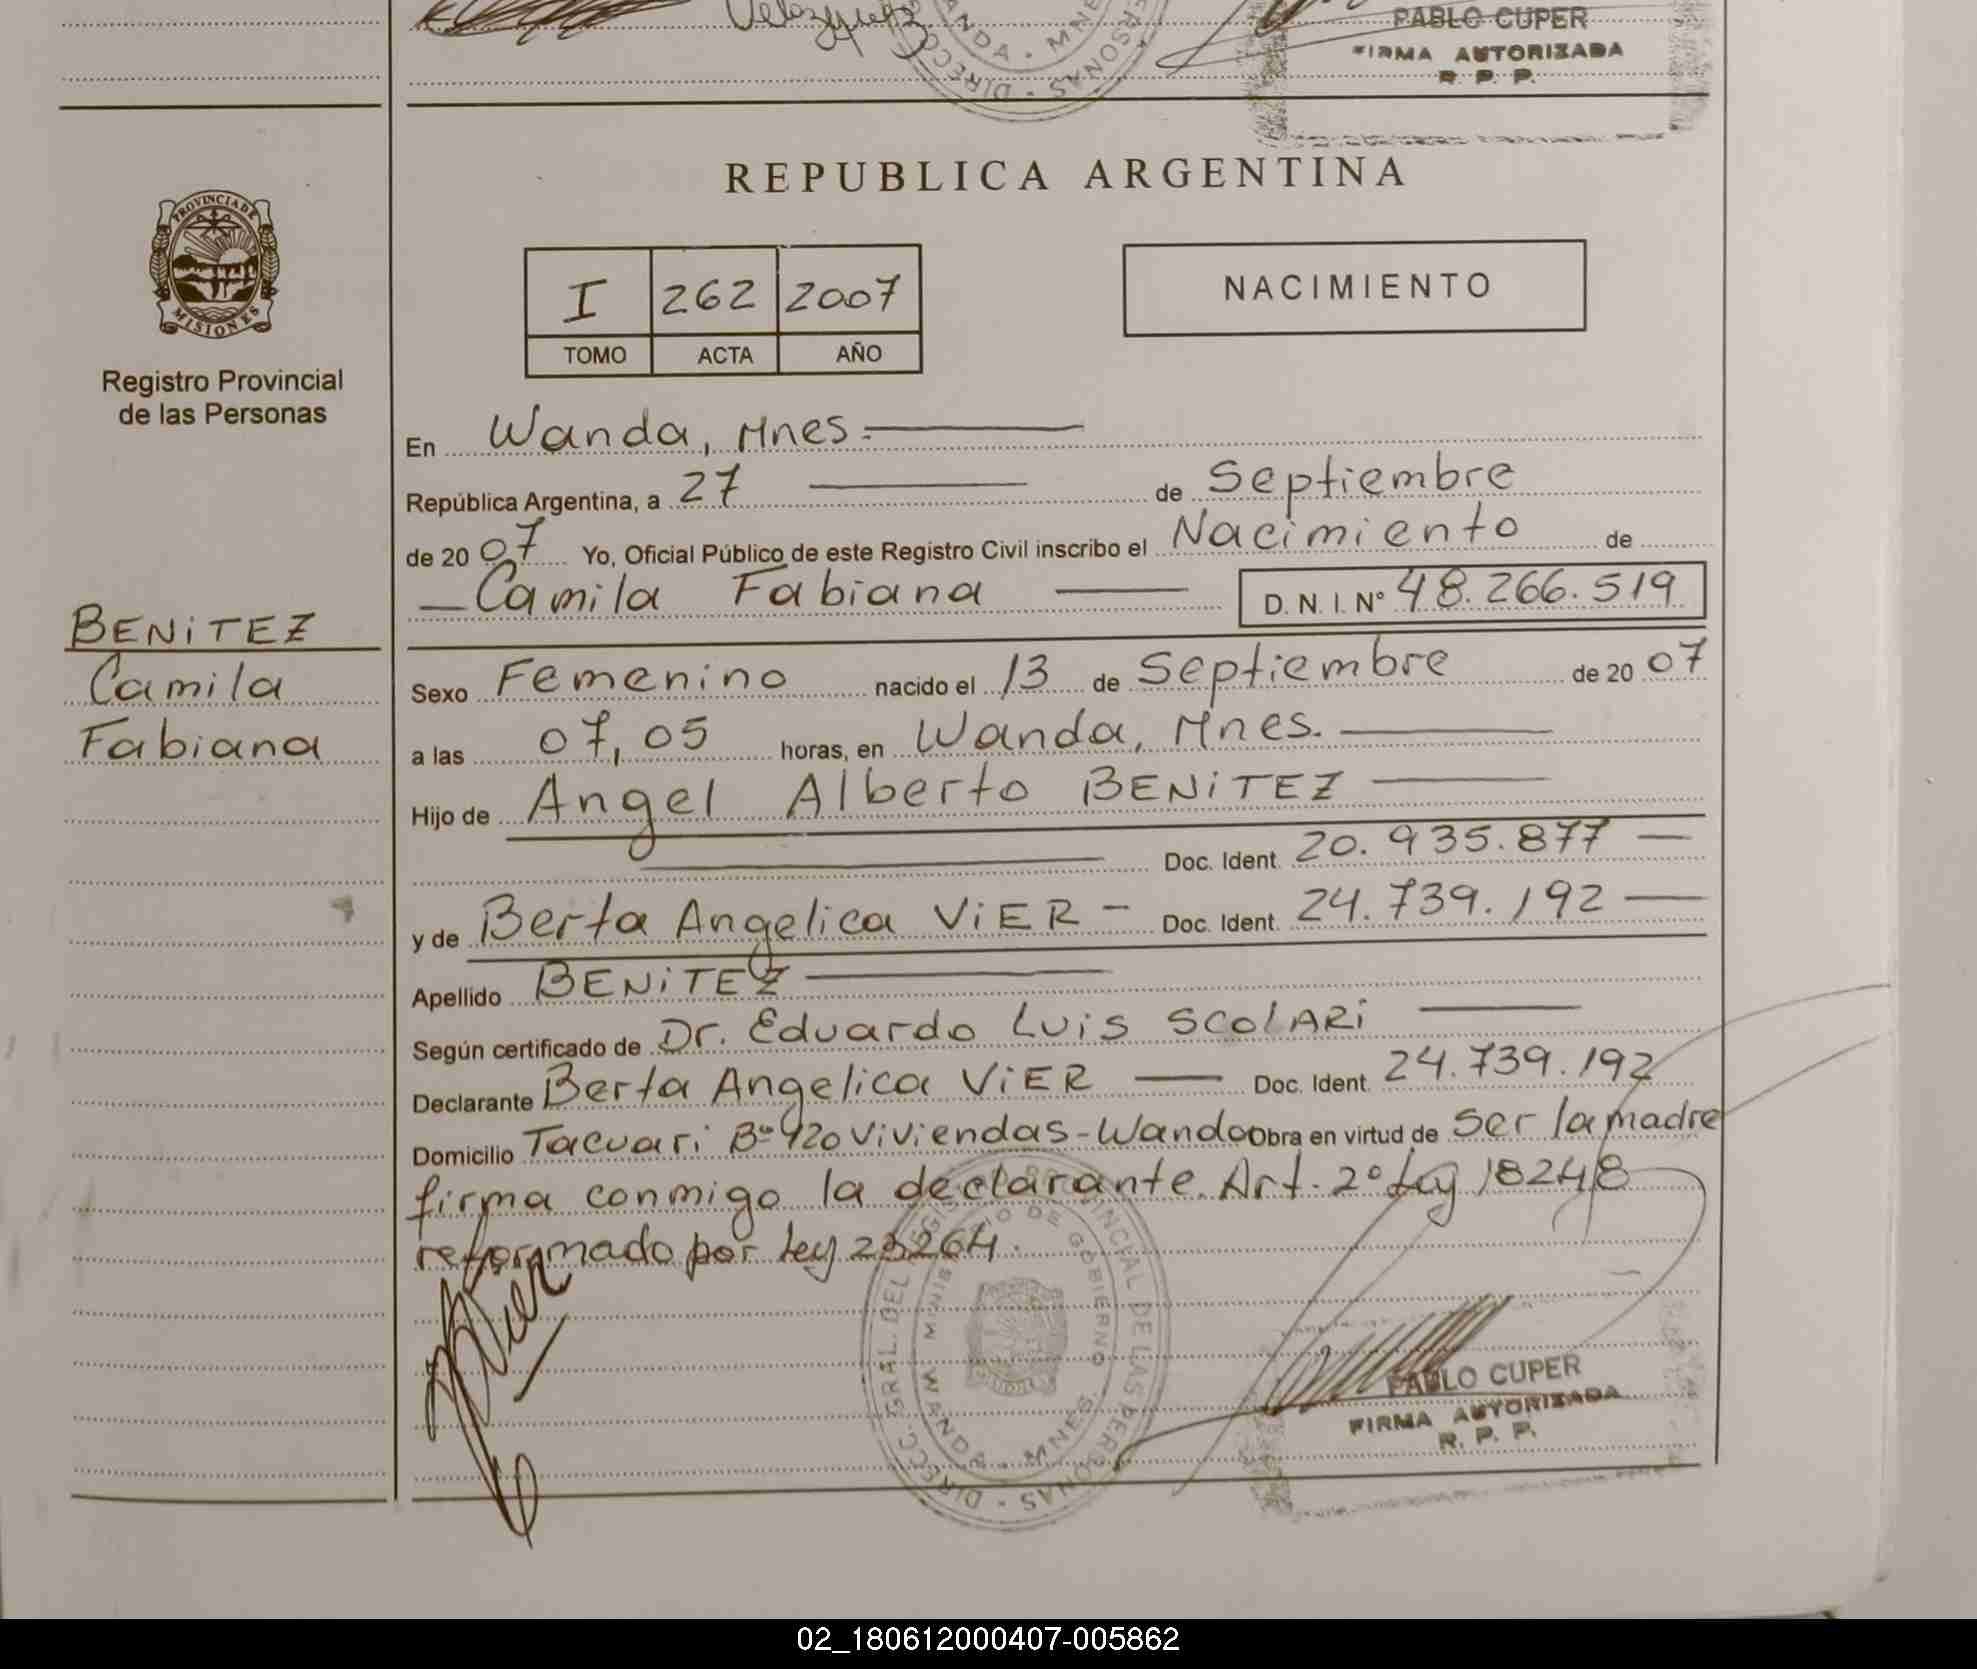 Velazquez
PABLO CUPER
FIRMA AUTORIZADA
R. P. P.
WANDA - MNES
DIRECC
PERSONAS
REPUBLICA ARGENTINA
PROVINCIA DE
MISIONES
Registro Provincial
de las Personas
I 262 2007
TOMO ACTA AÑO
NACIMIENTO
En Wanda, Mnes.
República Argentina, a 27 de Septiembre
de 2007 Yo, Oficial Público de este Registro Civil inscribo el Nacimiento de
Camila Fabiana D. N. I. Nº 48.266.519
BENiTEZ
Camila
Fabiana
Sexo Femenino nacido el 13 de Septiembre de 2007
a las 07,05 horas, en Wanda, Mnes.
Hijo de Angel Alberto BENiTEZ
Doc. Ident. 20.935.877
y de Berta Angelica ViER - Doc. Ident. 24.739.192
Apellido BENiTEZ
Según certificado de Dr. Eduardo Luis SCOlARi
Declarante Berta Angelica ViER Doc. Ident. 24.739.192
Domicilio Tacuari Bº 920 Viviendas - Wanda Obra en virtud de ser la madre
firma conmigo la declarante. Art. 2º Ley 18248
reformado por Ley 23264.
Vier
DIRECC. GRAL. DEL REGISTRO PROVINCIAL DE LAS PERSONAS
MINISTERIO DE GOBIERNO
WANDA - MNES.
PABLO CUPER
FIRMA AUTORIZADA
R. P. P.
02_180612000407-005862